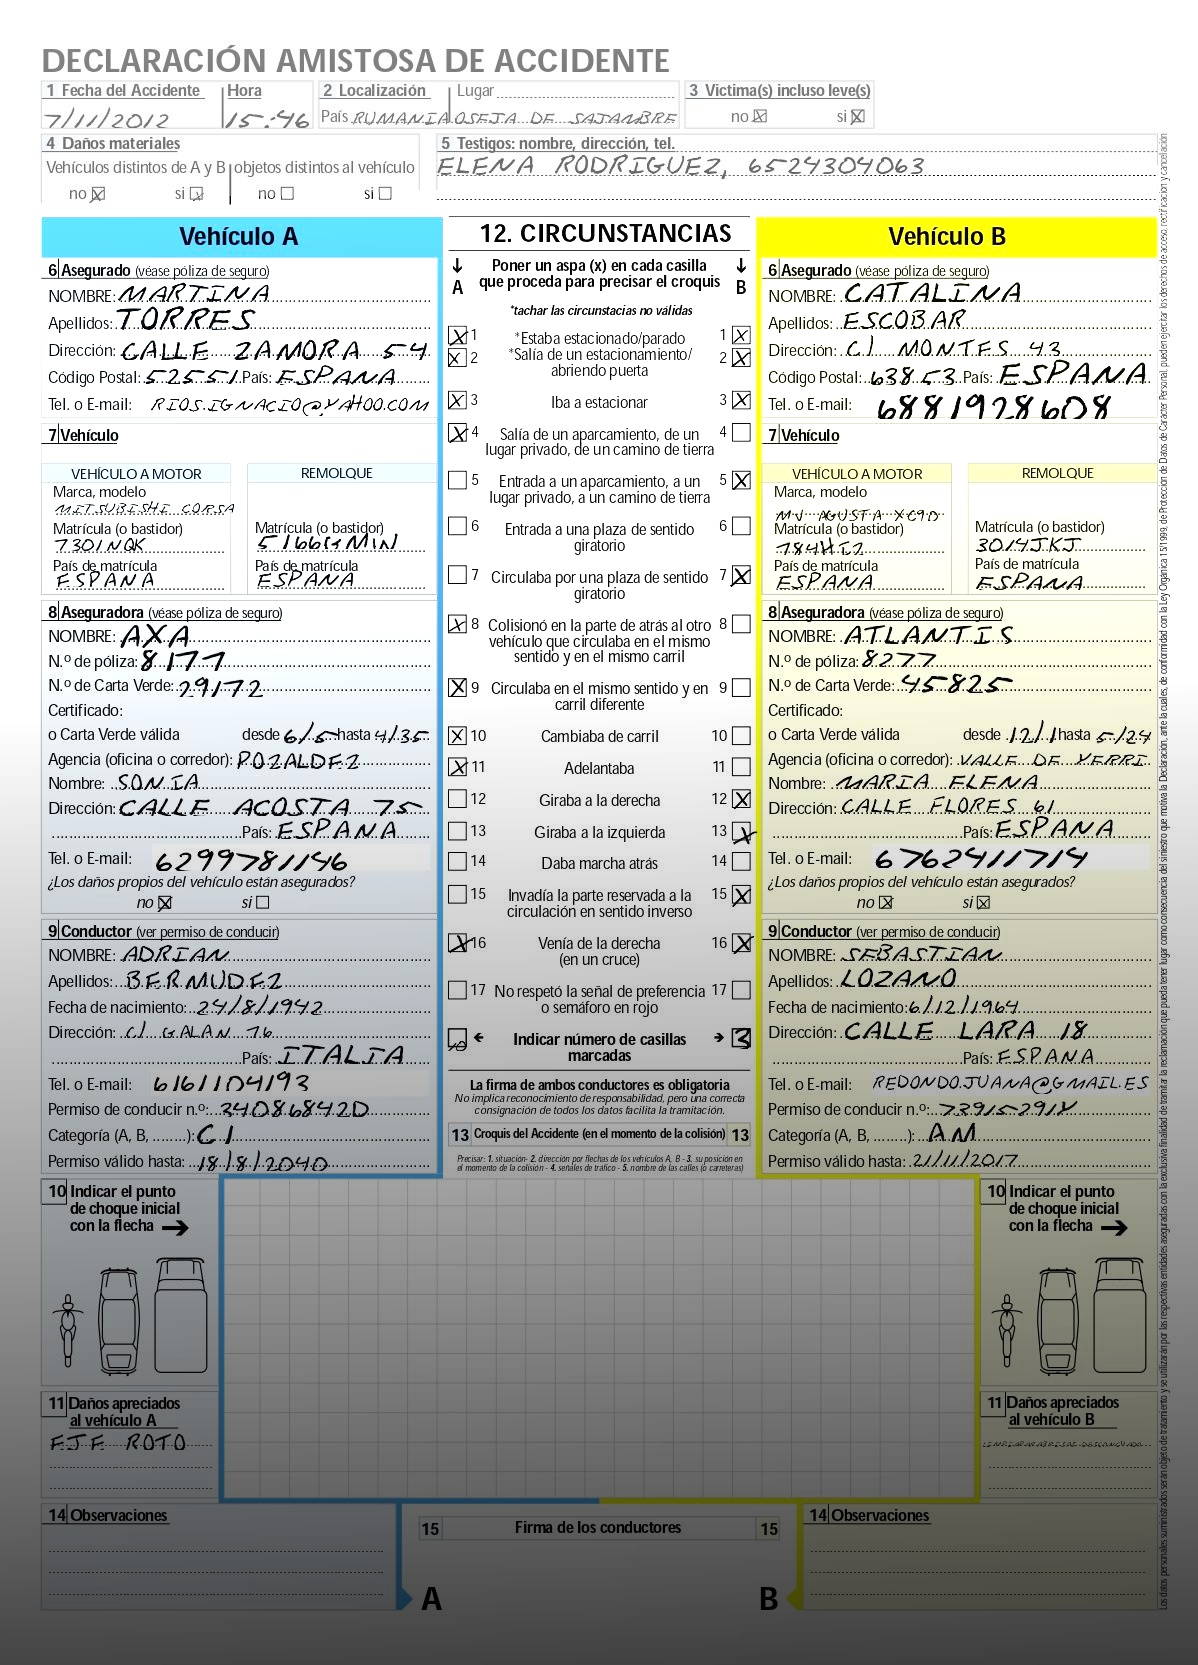 DECLARACIÓN AMISTOSA DE ACCIDENTE
1 Fecha del Accidente Hora 2 Localización Lugar 3 Victima(s) incluso leve(s)
7/11/2012 15:46 País RUMANIA OSEJA DE SAJAMBRE no si
4 Daños materiales 5 Testigos: nombre, dirección, tel.
Vehículos distintos de A y B objetos distintos al vehículo ELENA RODRIGUEZ, 6524304063
no si no si
Vehículo A
6 Asegurado (véase póliza de seguro)
NOMBRE: MARTINA
Apellidos: TORRES
Dirección: CALLE ZAMORA 54
Código Postal: 52551 País: ESPANA
Tel. o E-mail: RIOS.IGNACIO@YAHOO.COM
7 Vehículo
VEHÍCULO A MOTOR REMOLQUE
Marca, modelo
MITSUBISHI CORSA
Matrícula (o bastidor) Matrícula (o bastidor)
7301NQK 5166GMIN
País de matrícula País de matrícula
ESPANA ESPANA
8 Aseguradora (véase póliza de seguro)
NOMBRE: AXA
N.º de póliza: 8177
N.º de Carta Verde: 29172
Certificado:
o Carta Verde válida desde 6/5 hasta 4/35
Agencia (oficina o corredor): POZALDEZ
Nombre: SONIA
Dirección: CALLE ACOSTA 75
País: ESPANA
Tel. o E-mail: 6299781146
¿Los daños propios del vehículo están asegurados?
no si
9 Conductor (ver permiso de conducir)
NOMBRE: ADRIAN
Apellidos: BERMUDEZ
Fecha de nacimiento: 24/8/1942
Dirección: C/ GALAN 76
País: ITALIA
Tel. o E-mail: 6161104193
Permiso de conducir n.º: 34086842D
Categoría (A, B, ........): C1
Permiso válido hasta: 18/8/2040
12. CIRCUNSTANCIAS
A Poner un aspa (x) en cada casilla B
que proceda para precisar el croquis
*tachar las circunstacias no válidas
1 *Estaba estacionado/parado 1
2 *Salía de un estacionamiento/ 2
abriendo puerta
3 Iba a estacionar 3
4 Salía de un aparcamiento, de un 4
lugar privado, de un camino de tierra
5 Entrada a un aparcamiento, a un 5
lugar privado, a un camino de tierra
6 Entrada a una plaza de sentido 6
giratorio
7 Circulaba por una plaza de sentido 7
giratorio
8 Colisionó en la parte de atrás al otro 8
vehículo que circulaba en el mismo
sentido y en el mismo carril
9 Circulaba en el mismo sentido y en 9
carril diferente
10 Cambiaba de carril 10
11 Adelantaba 11
12 Giraba a la derecha 12
13 Giraba a la izquierda 13
14 Daba marcha atrás 14
15 Invadía la parte reservada a la 15
circulación en sentido inverso
16 Venía de la derecha 16
(en un cruce)
17 No respetó la señal de preferencia 17
o semáforo en rojo
10 Indicar número de casillas 3
marcadas
La firma de ambos conductores es obligatoria
No implica reconocimiento de responsabilidad, pero una correcta
consignación de todos los datos facilita la tramitación.
13 Croquis del Accidente (en el momento de la colisión) 13
Precisar: 1. situación- 2. dirección por flechas de los vehículos A, B - 3. su posición en
el momento de la colisión - 4. señales de tráfico - 5. nombre de las calles (o carreteras)
Vehículo B
6 Asegurado (véase póliza de seguro)
NOMBRE: CATALINA
Apellidos: ESCOBAR
Dirección: C/ MONTES 43
Código Postal: 63853 País: ESPANA
Tel. o E-mail: 6881928608
7 Vehículo
VEHÍCULO A MOTOR REMOLQUE
Marca, modelo
MV AGUSTA XC90
Matrícula (o bastidor) Matrícula (o bastidor)
784HIZ 3014JKJ
País de matrícula País de matrícula
ESPANA ESPANA
8 Aseguradora (véase póliza de seguro)
NOMBRE: ATLANTIS
N.º de póliza: 8277
N.º de Carta Verde: 45825
Certificado:
o Carta Verde válida desde 12/1 hasta 5/24
Agencia (oficina o corredor): VALLE DE YERRI
Nombre: MARIA ELENA
Dirección: CALLE FLORES 61
País: ESPANA
Tel. o E-mail: 6762411714
¿Los daños propios del vehículo están asegurados?
no si
9 Conductor (ver permiso de conducir)
NOMBRE: SEBASTIAN
Apellidos: LOZANO
Fecha de nacimiento: 6/12/1964
Dirección: CALLE LARA 18
País: ESPANA
Tel. o E-mail: REDONDOJUANA@GMAIL.ES
Permiso de conducir n.º: 73915291X
Categoría (A, B, ........): AM
Permiso válido hasta: 21/11/2017
10 Indicar el punto
de choque inicial
con la flecha
10 Indicar el punto
de choque inicial
con la flecha
11 Daños apreciados
al vehículo A
EJE ROTO
11 Daños apreciados
al vehículo B
14 Observaciones
15 Firma de los conductores 15
14 Observaciones
A B
Los datos personales suministrados serán objeto de tratamiento y se utilizarán por las respectivas entidades aseguradas con la exclusiva finalidad de tramitar la reclamación que pueda tener lugar como consecuencia del siniestro que motiva la Declaración, ante la cuales, de conformidad con la Ley Orgánica 15/1999, de Protección de Datos de Carácter Personal, pueden ejercitar los derechos de acceso, rectificación y cancelación